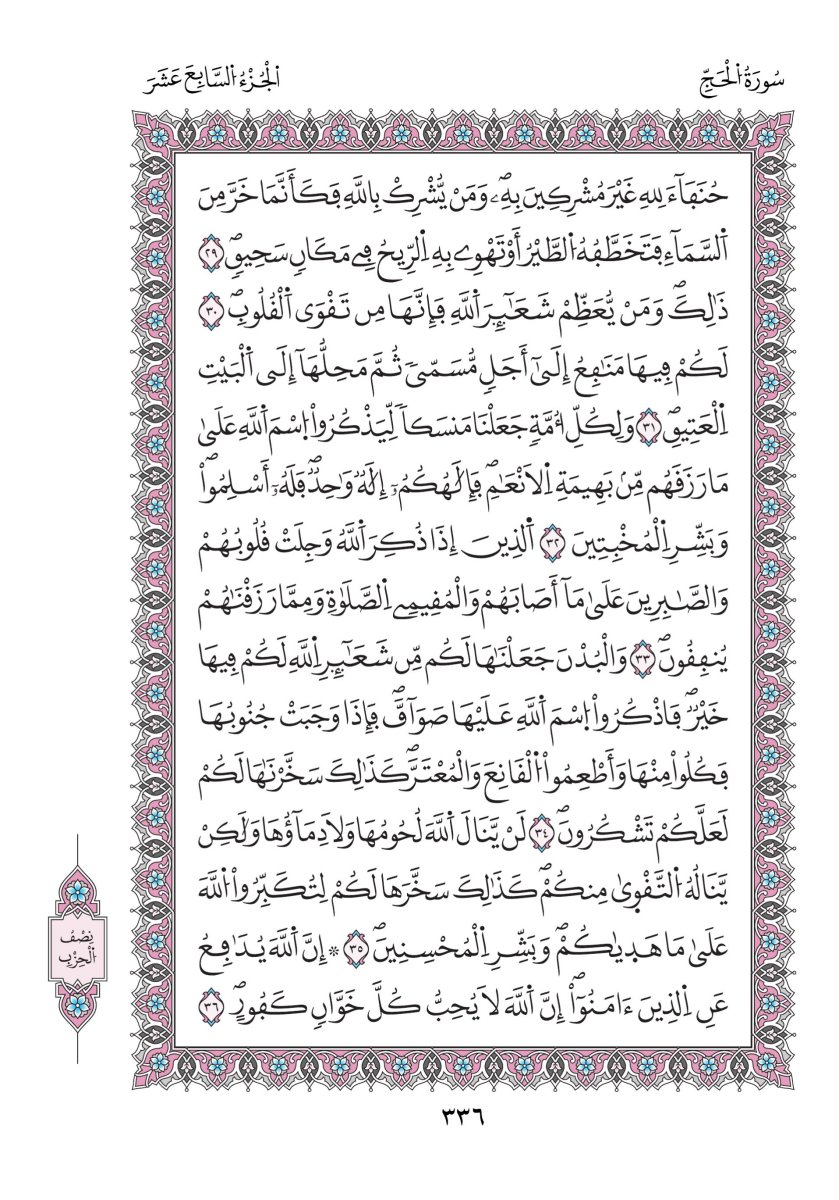 سُورَةُ اُ۬لْحَجِّ
اَ۬لْجُزْءُ اُ۬لسَّابِعَ عَشَرَ
حُنَفَآءَ لِلهِ غَيْرَ مُشْرِكِينَ بِهِۦۖ وَمَنْ يُّشْرِكْ بِاللَّهِ فَكَأَنَّمَا خَرَّ مِنَ
اَ۬لسَّمَآءِ فَتَخَطَّفُهُ اُ۬لطَّيْرُ أَوْ تَهْوِے بِهِ اِ۬لرِّيحُ فِے مَكَانٖ سَحِيقٖۖ ٢٩
ذَٰلِكَۖ وَمَنْ يُّعَظِّمْ شَعَـٰٓئِرَ اَ۬للَّهِ فَإِنَّهَا مِن تَقْوَى اَ۬لْقُلُوبِۖ ٣٠
لَكُمْ فِيهَا مَنَـٰفِعُ إِلَىٰٓ أَجَلٖ مُّسَمّىٗ ثُمَّ مَحِلُّهَآ إِلَى اَ۬لْبَيْتِ
اِ۬لْعَتِيقِۖ ٣١ وَلِكُلِّ أُمَّةٖ جَعَلْنَا مَنسَكاٗ لِّيَذْكُرُواْ اُ۪سْمَ اَ۬للَّهِ عَلَىٰ
مَا رَزَقَهُم مِّنۢ بَهِيمَةِ اِ۬لَانْعَـٰمِۖ فَإِلَـٰهُكُمُۥٓ إِلَـٰهٞ وَٰحِدٞۖ فَلَهُۥٓ أَسْلِمُواْۖ
وَبَشِّرِ اِ۬لْمُخْبِتِينَ ٣٢ اَ۬لذِينَ إِذَا ذُكِرَ اَ۬للَّهُ وَجِلَتْ قُلُوبُهُمْ
وَالصَّـٰبِرِينَ عَلَىٰ مَآ أَصَابَهُمْ وَالْمُقِيمِے اِ۬لصَّلَوٰةِ وَمِمَّا رَزَقْنَـٰهُمْ
يُنفِقُونَۖ ٣٣ وَالْبُدْنَ جَعَلْنَـٰهَا لَكُم مِّن شَعَـٰٓئِرِ اِ۬للَّهِ لَكُمْ فِيهَا
خَيْرٞۖ فَاذْكُرُواْ اُ۪سْمَ اَ۬للَّهِ عَلَيْهَا صَوَآفَّۖ فَإِذَا وَجَبَتْ جُنُوبُهَا
فَكُلُواْ مِنْهَا وَأَطْعِمُواْ اُ۬لْقَانِعَ وَالْمُعْتَرَّۖ كَذَٰلِكَ سَخَّرْنَـٰهَا لَكُمْ
لَعَلَّكُمْ تَشْكُرُونَۖ ٣٤ لَنْ يَّنَالَ اَ۬للَّهَ لُحُومُهَا وَلَا دِمَآؤُهَا وَلَـٰكِنْ
يَّنَالُهُ اُ۬لتَّقْوٜىٰ مِنكُمْۖ كَذَٰلِكَ سَخَّرَهَا لَكُمْ لِتُكَبِّرُواْ اُ۬للَّهَ
عَلَىٰ مَا هَدٜيٰكُمْۖ وَبَشِّرِ اِ۬لْمُحْسِنِينَۖ ٣٥ ۞ إِنَّ اَ۬للَّهَ يُدَٰفِعُ
عَنِ اِ۬لذِينَ ءَامَنُوٓاْۖ إِنَّ اَ۬للَّهَ لَا يُحِبُّ كُلَّ خَوَّانٖ كَفُورٍۖ ٣٦
نِصْفُ
اُ۬لْحِزْبِ
٣٣٦